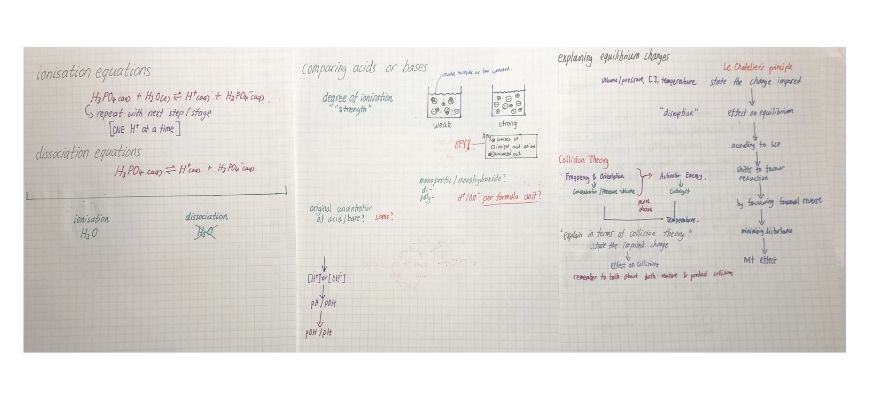 ionisation equations
H₃PO₄ (aq) + H₂O(l) ⇌ H⁺(aq) + H₂PO₄⁻(aq)
repeat with next step / stage
[ONE H⁺ at a time]
dissociation equations
H₃PO₄ (aq) ⇌ H⁺(aq) + H₂PO₄⁻(aq)
ionisation
H₂O
dissociation
H₂O
comparing acids or bases
degree of ionisation
"strength"
weak
strong
KEY!
monoprotic / monohydroxide?
di-
poly-
H⁺/OH⁻ per formula unit?
original concentration
of acid / base? same?
[H⁺] or [OH⁻]
pH / pOH
pOH / pH
explaining equilibrium changes
volume / pressure, [ ], temperature
"disruption"
Le Chatelier's principle
state the change imposed
effect on equilibrium
according to LCP
shifts to favour
reduction
by favouring forward reverse
minimising disturbance
net effect
Collision Theory
Frequency & Orientation
Concentration / Pressure volume
Activation Energy.
Catalyst
Temperature.
"explain in terms of collision theory"
state the imposed change
effect on collisions
remember to talk about both reactant & product collisions